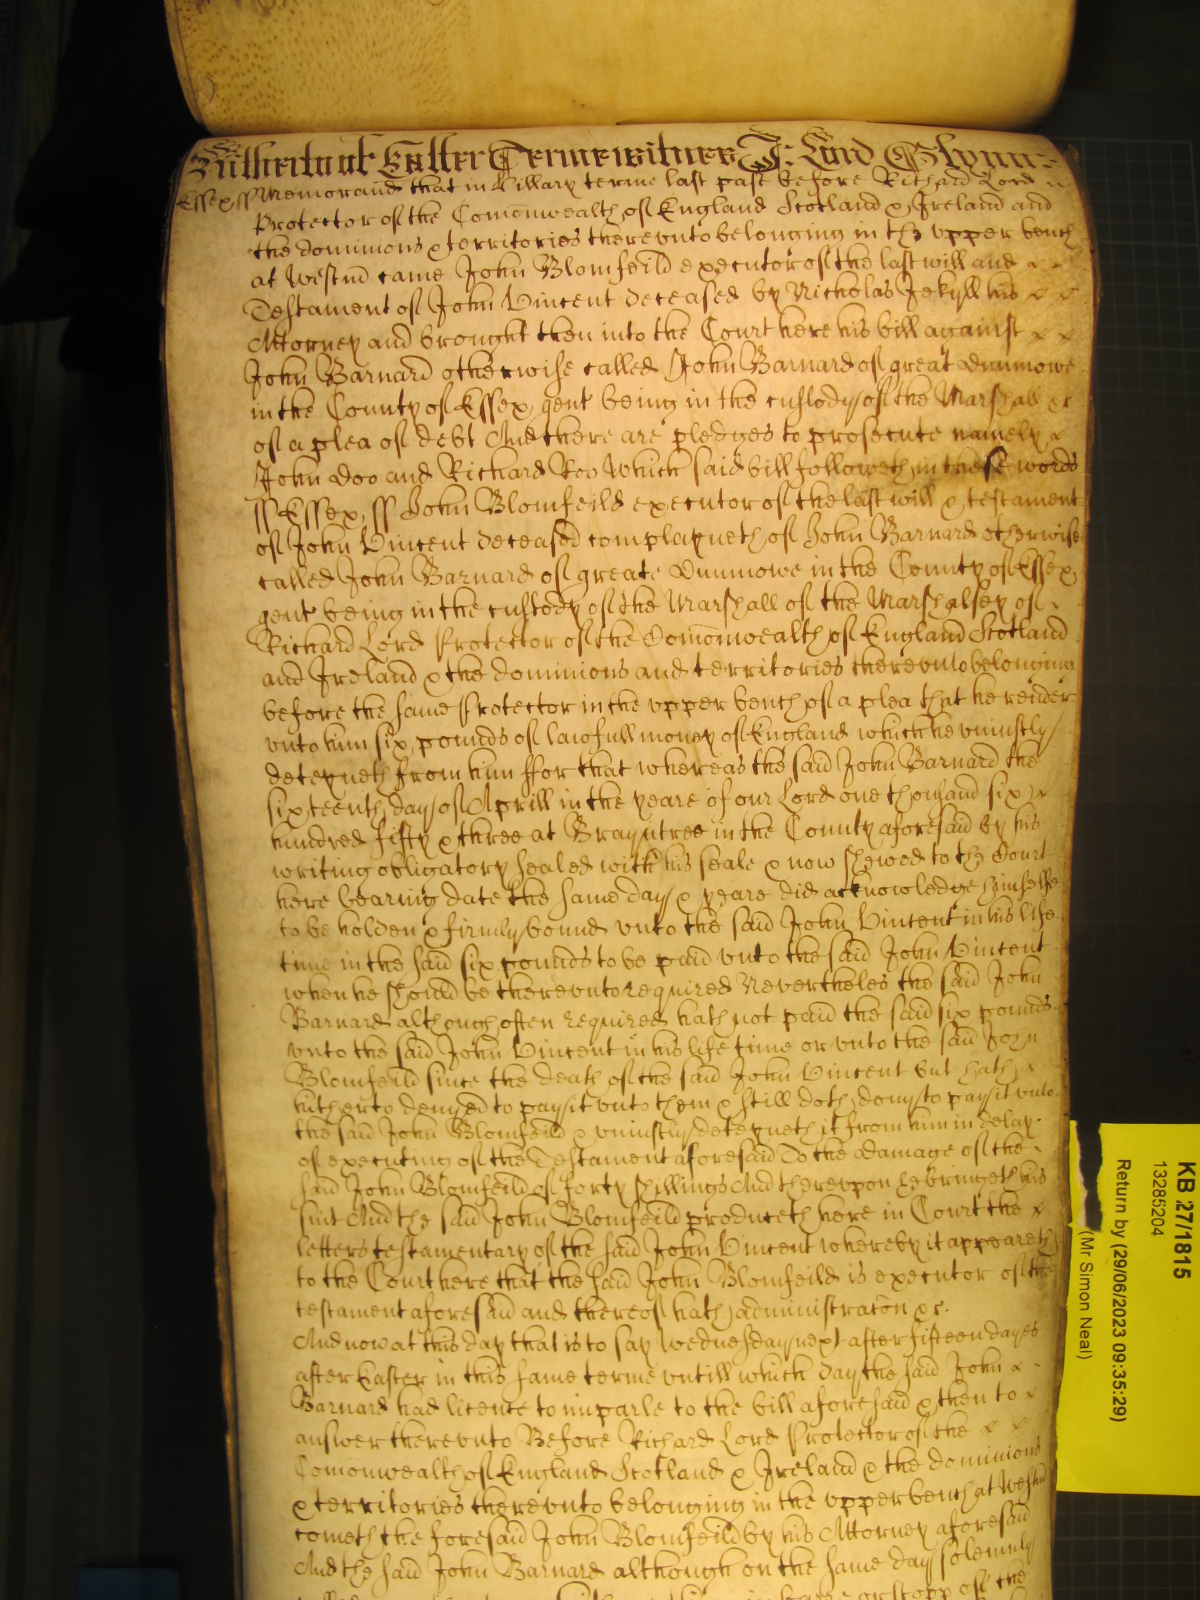 Hitherto of Easter Terme witnes J: Lord Glynn:
Essex ss Memorand that in Hillary terme last past before Richard Lord
Protector of the Comonwealth of England Scotland & Ireland and
the dominions & territories therevnto belonging in the vpper bench
at Westm came John Blomfeild executor of the last will and
Testament of John Vincent deceased by Nicholas Jekyll his
Attorney and brought then into the Court here his bill against
John Barnard otherwise called John Barnard of great Dunmowe
in the County of Essex gent being in the custody of the Marshall &c
of a plea of debt And there are pledges to prosecute namely
John Doo and Richard Roo Which said bill followeth in these words
ss Essex ss John Blomfeild executor of the last will & testament
of John Vincent deceased complayneth of John Barnard otherwise
called John Barnard of greate Dunmowe in the County of Essex
gent being in the custody of the Marshall of the Marshalsey of
Richard Lord Protector of the Comonwealth of England Scotland
and Ireland & the dominions and territories therevnto belonging
before the same Protector in the vpper bench of a plea that he render
vnto him six pounds of lawfull money of England which he vniustly
deteyneth from him ffor that whereas the said John Barnard the
sixteenth day of Aprill in the yeare of our Lord one thousand six
hundred fifty & three at Brayntree in the County aforesaid by his
writing obligatory sealed with his seale & now shewed to the Court
here bearing date the same day & yeare did acknowledge himselfe
to be holden & firmly bound vnto the said John Vincent in his life
time in the said six pounds to be paid vnto the said John Vincent
when he should be therevnto required Nevertheles the said John
Barnard although often required hath not paid the said six pounds
vnto the said John Vincent in his life time or vnto the said John
Blomfeild since the death of the said John Vincent but hath
hitherto denyed to pay it vnto them & still doth deny to pay it vnto
the said John Blomfeild & vniustly deteyneth it from him in delay
of executing of the Testament aforesaid To the damage of the
said John Blomfeild of forty shillings And therevpon he bringeth his
suit And the said John Blomfeild produceth here in Court the
letters testamentary of the said John Vincent whereby it appeareth
to the Court here that the said John Blomfeild is executor of the
testament aforesaid and thereof hath administracon &c.
And now at this day that is to say Wednesday next after fifteen dayes
after Easter in this same terme vntill which day the said John
Barnard had licence to imparle to the bill aforesaid & then to
answer therevnto Before Richard Lord Protector of the
Comonwealth of England Scotland & Ireland & the dominions
& territories therevnto belonging in the vpper bench at Westm
cometh the foresaid John Blomfeild by his Attorney aforesaid
And the said John Barnard although on the same day solemnly
of the
KB 27/1815
13285204
Return by (29/06/2023 09:35:29)
(Mr Simon Neal)